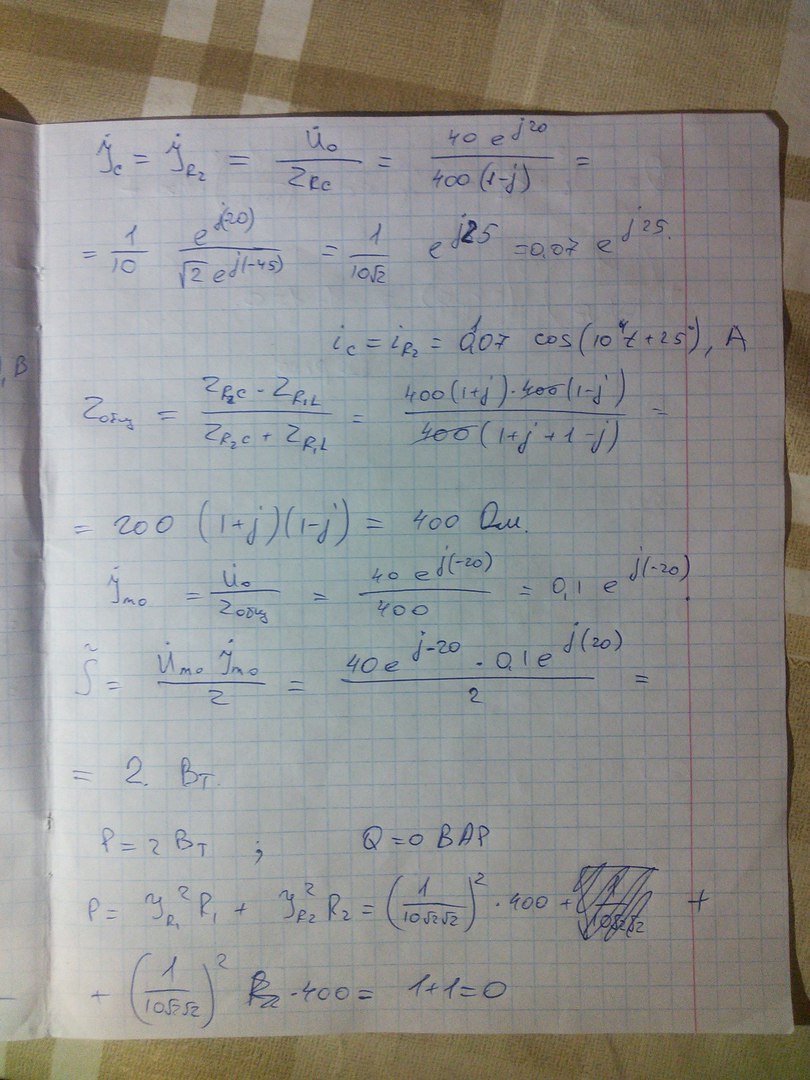 , В
J̇c = J̇R₂ = U̇₀ / ZRC = 40 e^j20 / 400 (1-j) =
= 1/10 e^j(-20) / √2 e^j(-45) = 1/10√2 e^j25 = 0,07 e^j25.
ic = iR₂ = 0,07 cos(10⁴t + 25°), А
Zобщ = ZR₂C · ZR₁L / ZR₂C + ZR₁L = 400(1+j) · 400(1-j) / 400(1+j+1-j) =
= 200 (1+j)(1-j) = 400 Ом.
J̇m₀ = U̇₀ / Zобщ = 40 e^j(-20) / 400 = 0,1 e^j(-20).
S̃ = U̇m₀ J̇m₀ / 2 = 40e^j-20 · 0,1e^j(20) / 2 =
= 2. Вт
P = 2 Вт ; Q = 0 ВАР
P = JR₁² R₁ + JR₂² R₂ = (1/10√2√2)² · 400 + +
+ (1/10√2√2)² · 400 = 1+1=0